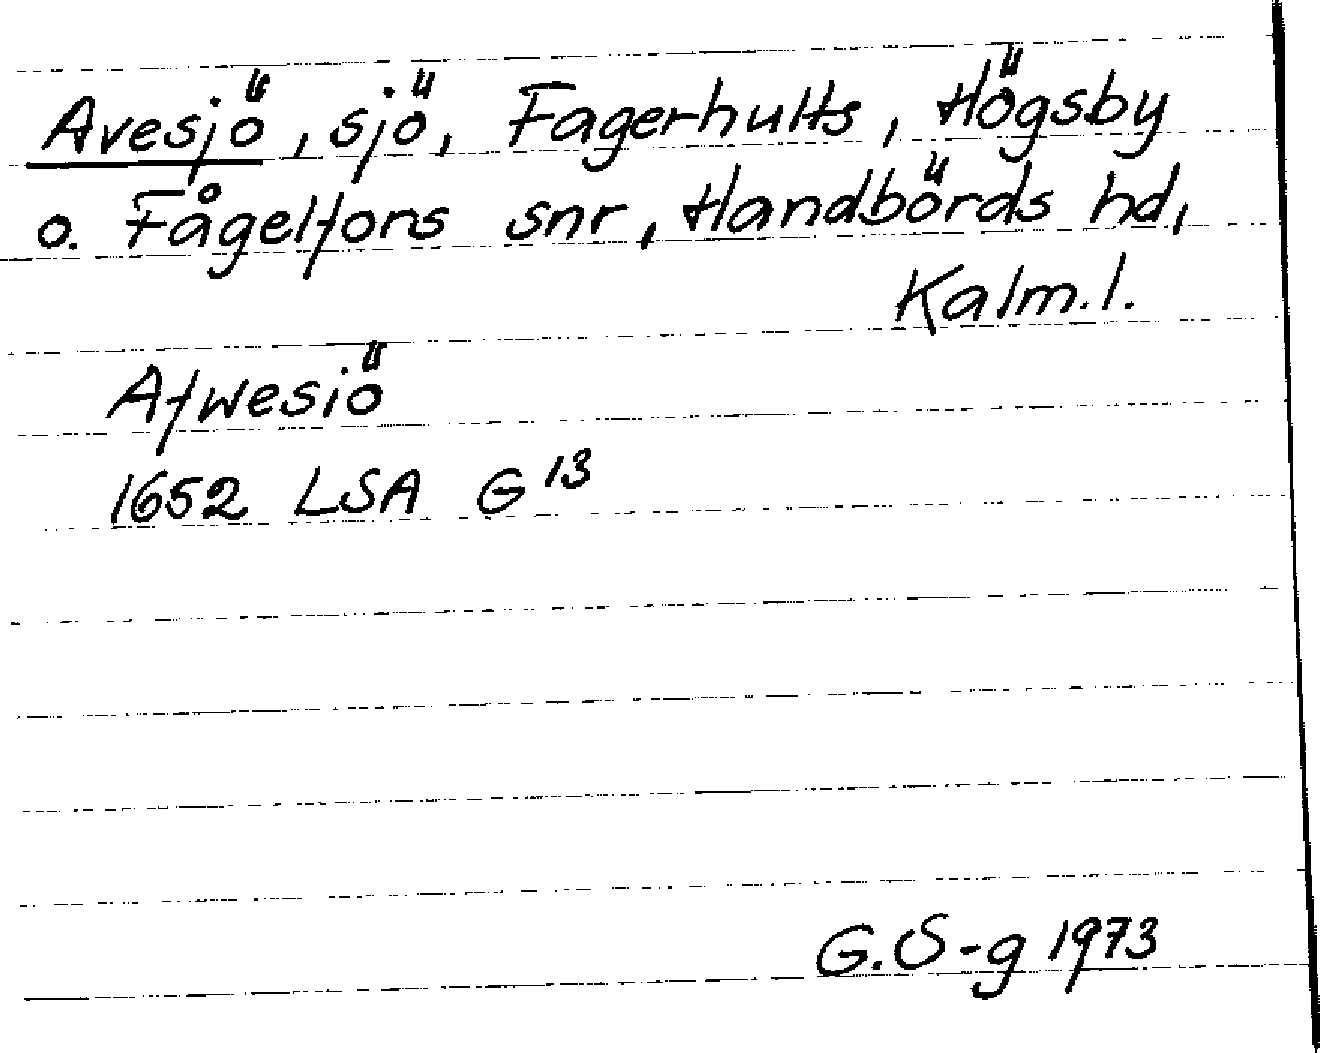 Avesjö, sjö, Fagerhults, Högsby
o. Fågelfors snr, Handbörds hd,
Kalm. l.
Afwesiö
1652 LSA G 13
G. S-g 1973